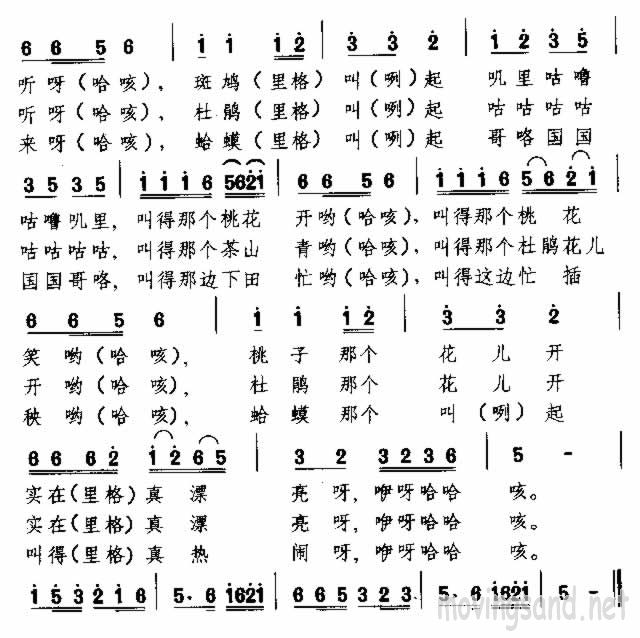 6 6 5 6 | i i i 2 | 3 3 2 | i 2 3 5 |
听呀(哈咳), 斑鸠(里格)叫(咧)起 叽里咕噜
听呀(哈咳), 杜鹃(里格)叫(咧)起 咕咕咕咕
来呀(哈咳), 蛤蟆(里格)叫(咧)起 哥咯国国
3 5 3 5 | i i i 6 5621 | 6 6 5 6 | i i i 6 5 6 2 i |
咕噜叽里, 叫得那个桃花 开哟(哈咳), 叫得那个桃 花
咕咕咕咕, 叫得那个茶山 青哟(哈咳), 叫得那个杜鹃花儿
国国哥咯, 叫得那边下田 忙哟(哈咳), 叫得这边忙 插
6 6 5 6 | i i i 2 | 3 3 2 |
笑哟(哈咳), 桃子那个 花儿开
开哟(哈咳), 杜鹃那个 花儿开
秧哟(哈咳), 蛤蟆那个 叫(咧)起
6 6 6 2 i 2 6 5 | 3 2 3 2 3 6 | 5 - |
实在(里格)真漂 亮呀,咿呀哈哈 咳。
实在(里格)真漂 亮呀,咿呀哈哈 咳。
叫得(里格)真热 闹呀,咿呀哈哈 咳。
i 5 3 2 i 6 i 2 | 5. 6 i62i | 6 6 5 3 2 3 | 5. 6 i62i | 5 - ‖
movingsand.net